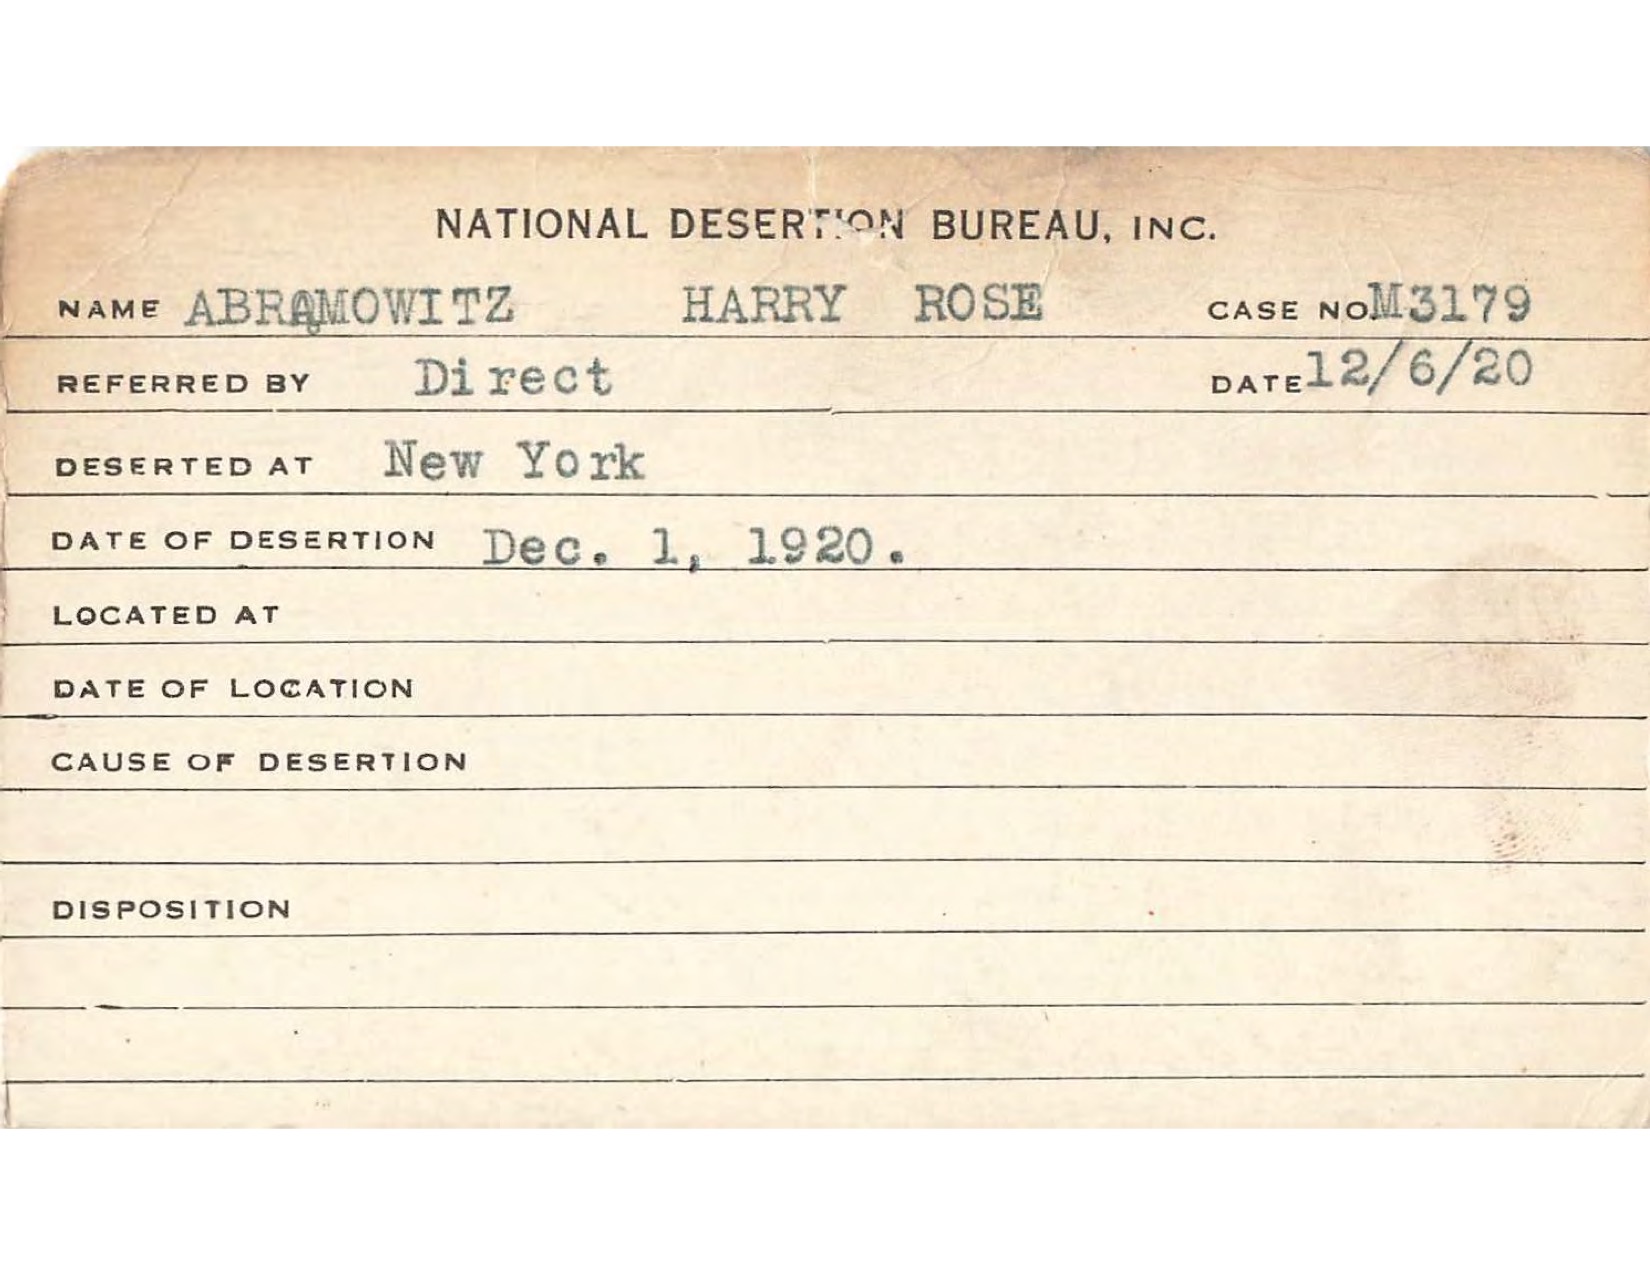 NATIONAL DESERTION BUREAU, INC.
NAME ABRAMOWITZ HARRY ROSE CASE NO. M3179
REFERRED BY Direct DATE 12/6/20
DESERTED AT New York
DATE OF DESERTION Dec. 1, 1920.
LOCATED AT
DATE OF LOCATION
CAUSE OF DESERTION
DISPOSITION